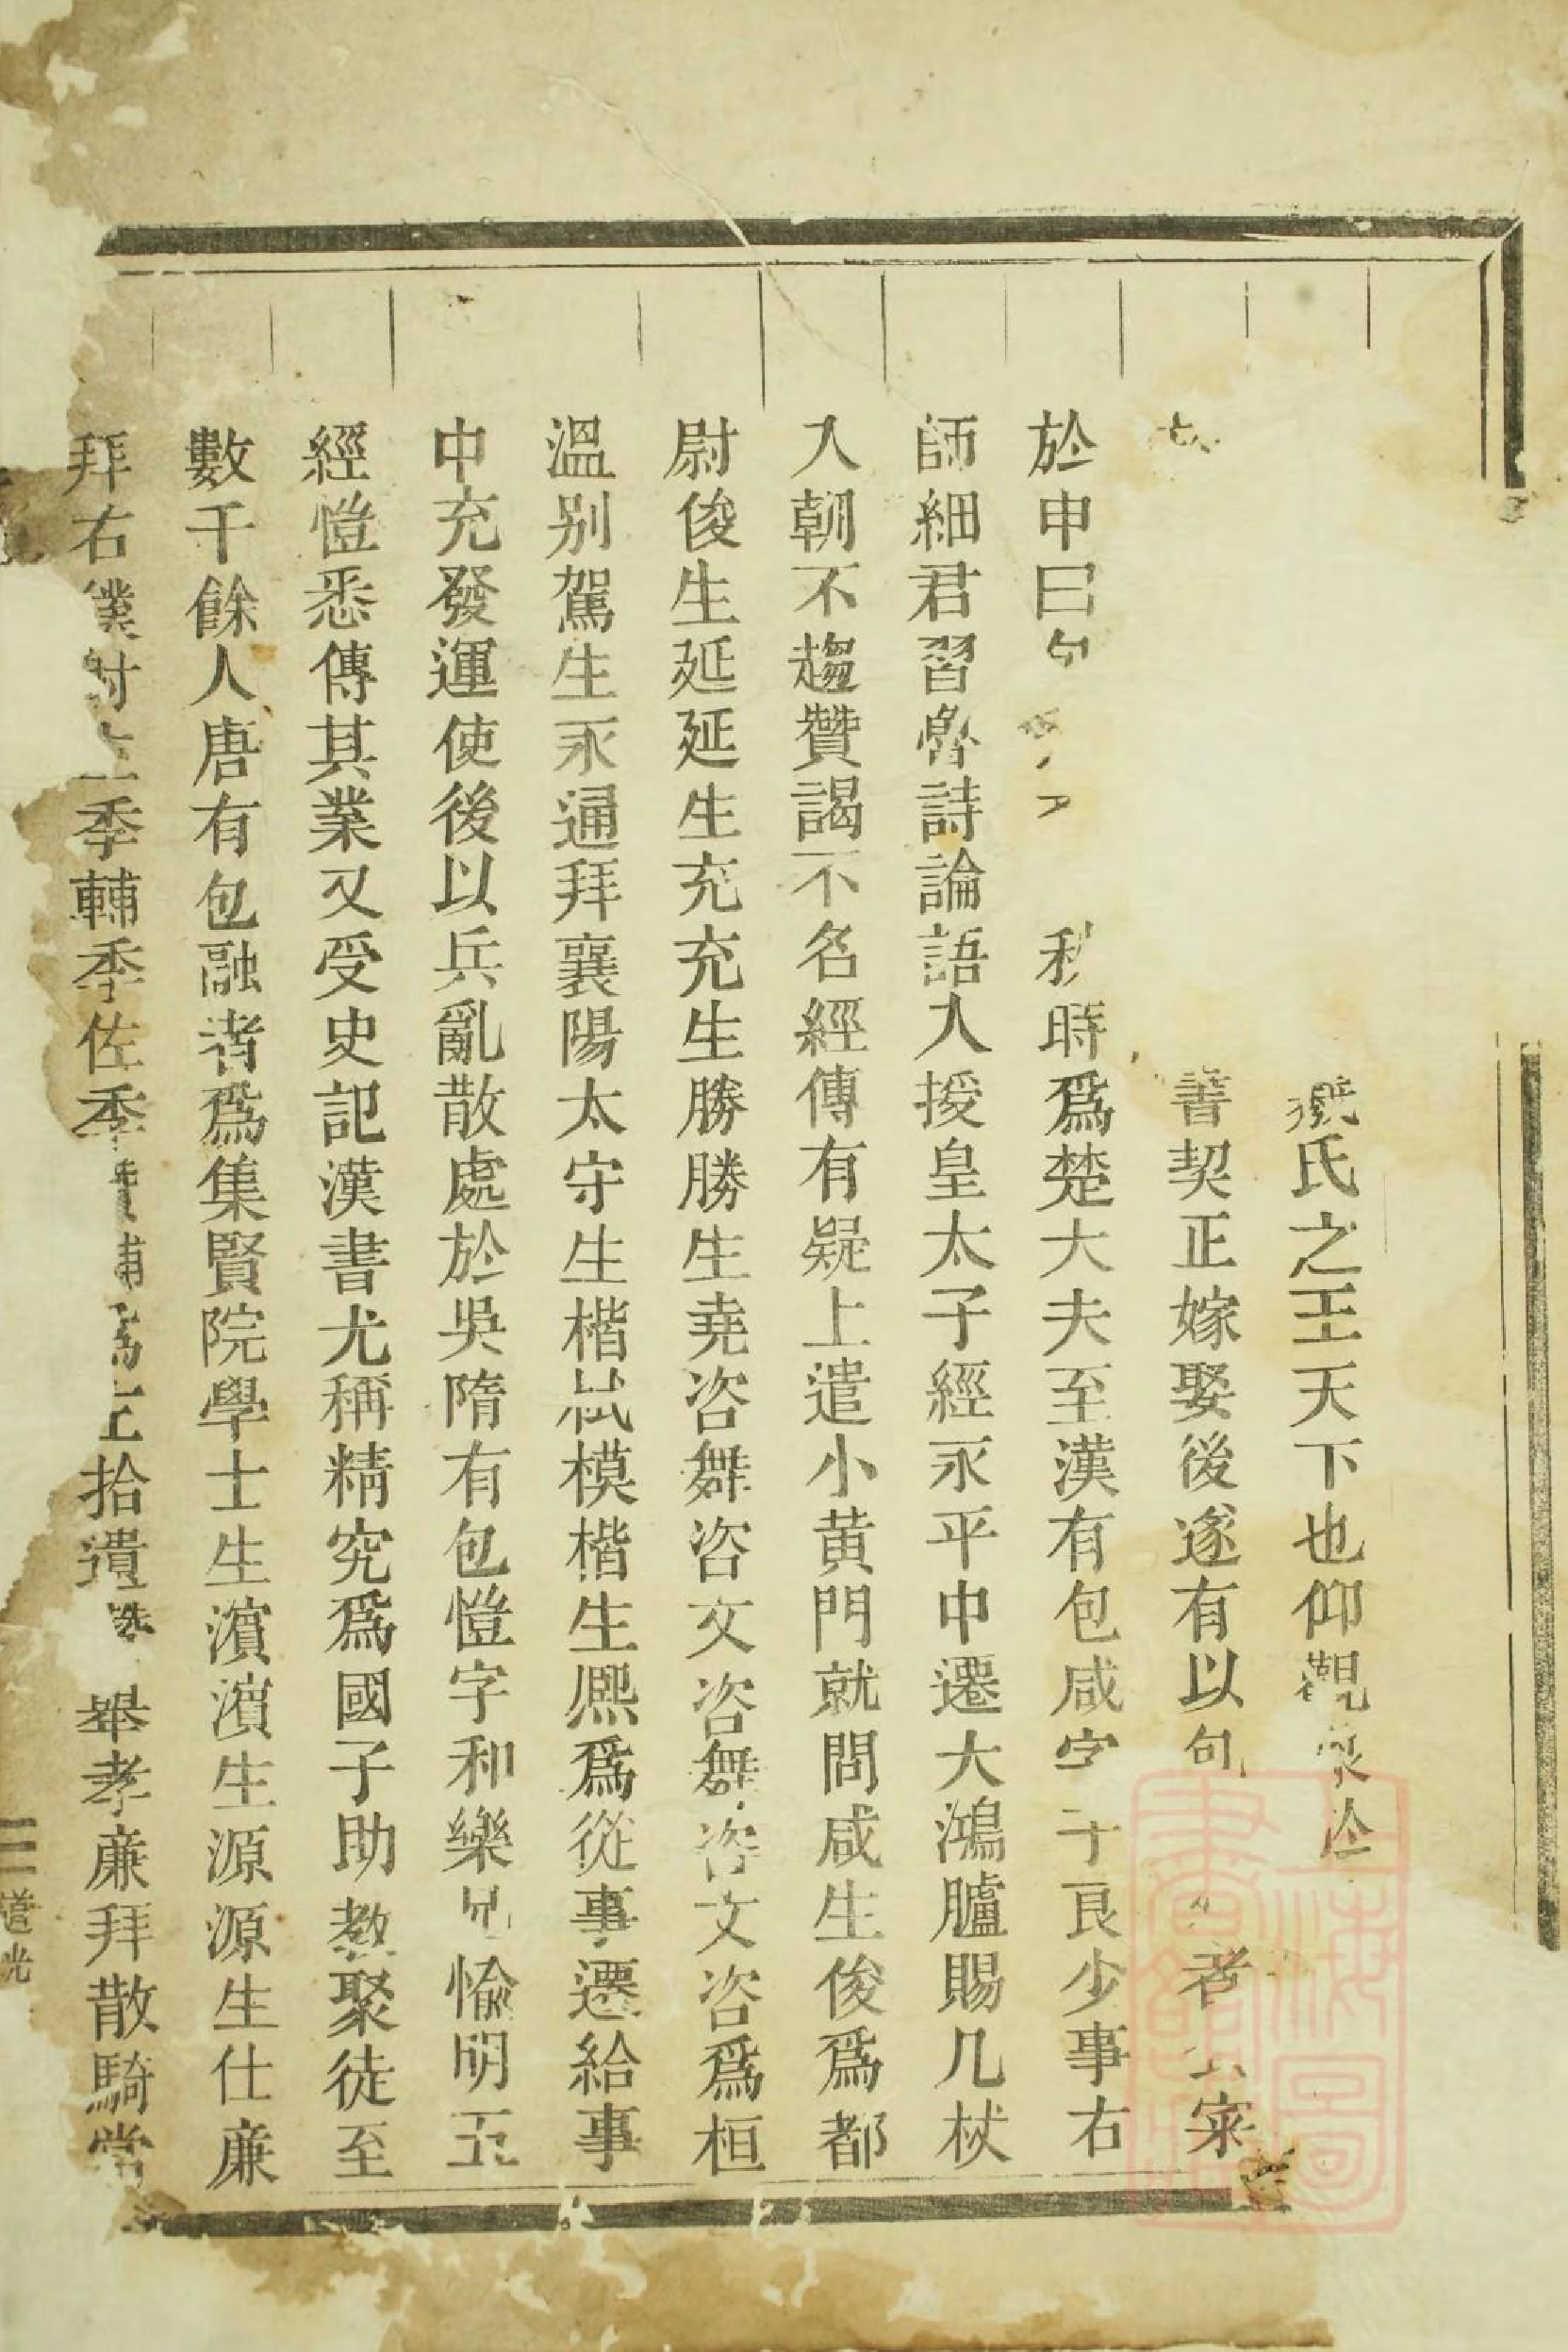 氏之王天下也仰觀
書契正嫁娶後遂有以包 者
於申曰包 秋時爲楚大夫至漢有包咸字子良少事右
師細君習魯詩論語入授皇太子經永平中遷大鴻臚賜几杖
入朝不趨贊謁不名經傳有疑上遣小黄門就問咸生俊爲都
尉俊生延延生充充生勝勝生堯咨舞咨文咨舞咨文咨爲桓
溫别駕生永通拜襄陽太守生楷栻模楷生熙爲從事遷給事
中充發運使後以兵亂散處於吳隋有包愷字和樂兄愉明五
經愷悉傳其業又受史記漢書尤稱精究爲國子助教聚徒至
數千餘人唐有包融者爲集賢院學士生濵濵生源源生仕廉
拜右僕射 季輔季佐季 輔爲左拾遺 舉孝廉拜散騎常
道光
上海圖書館藏